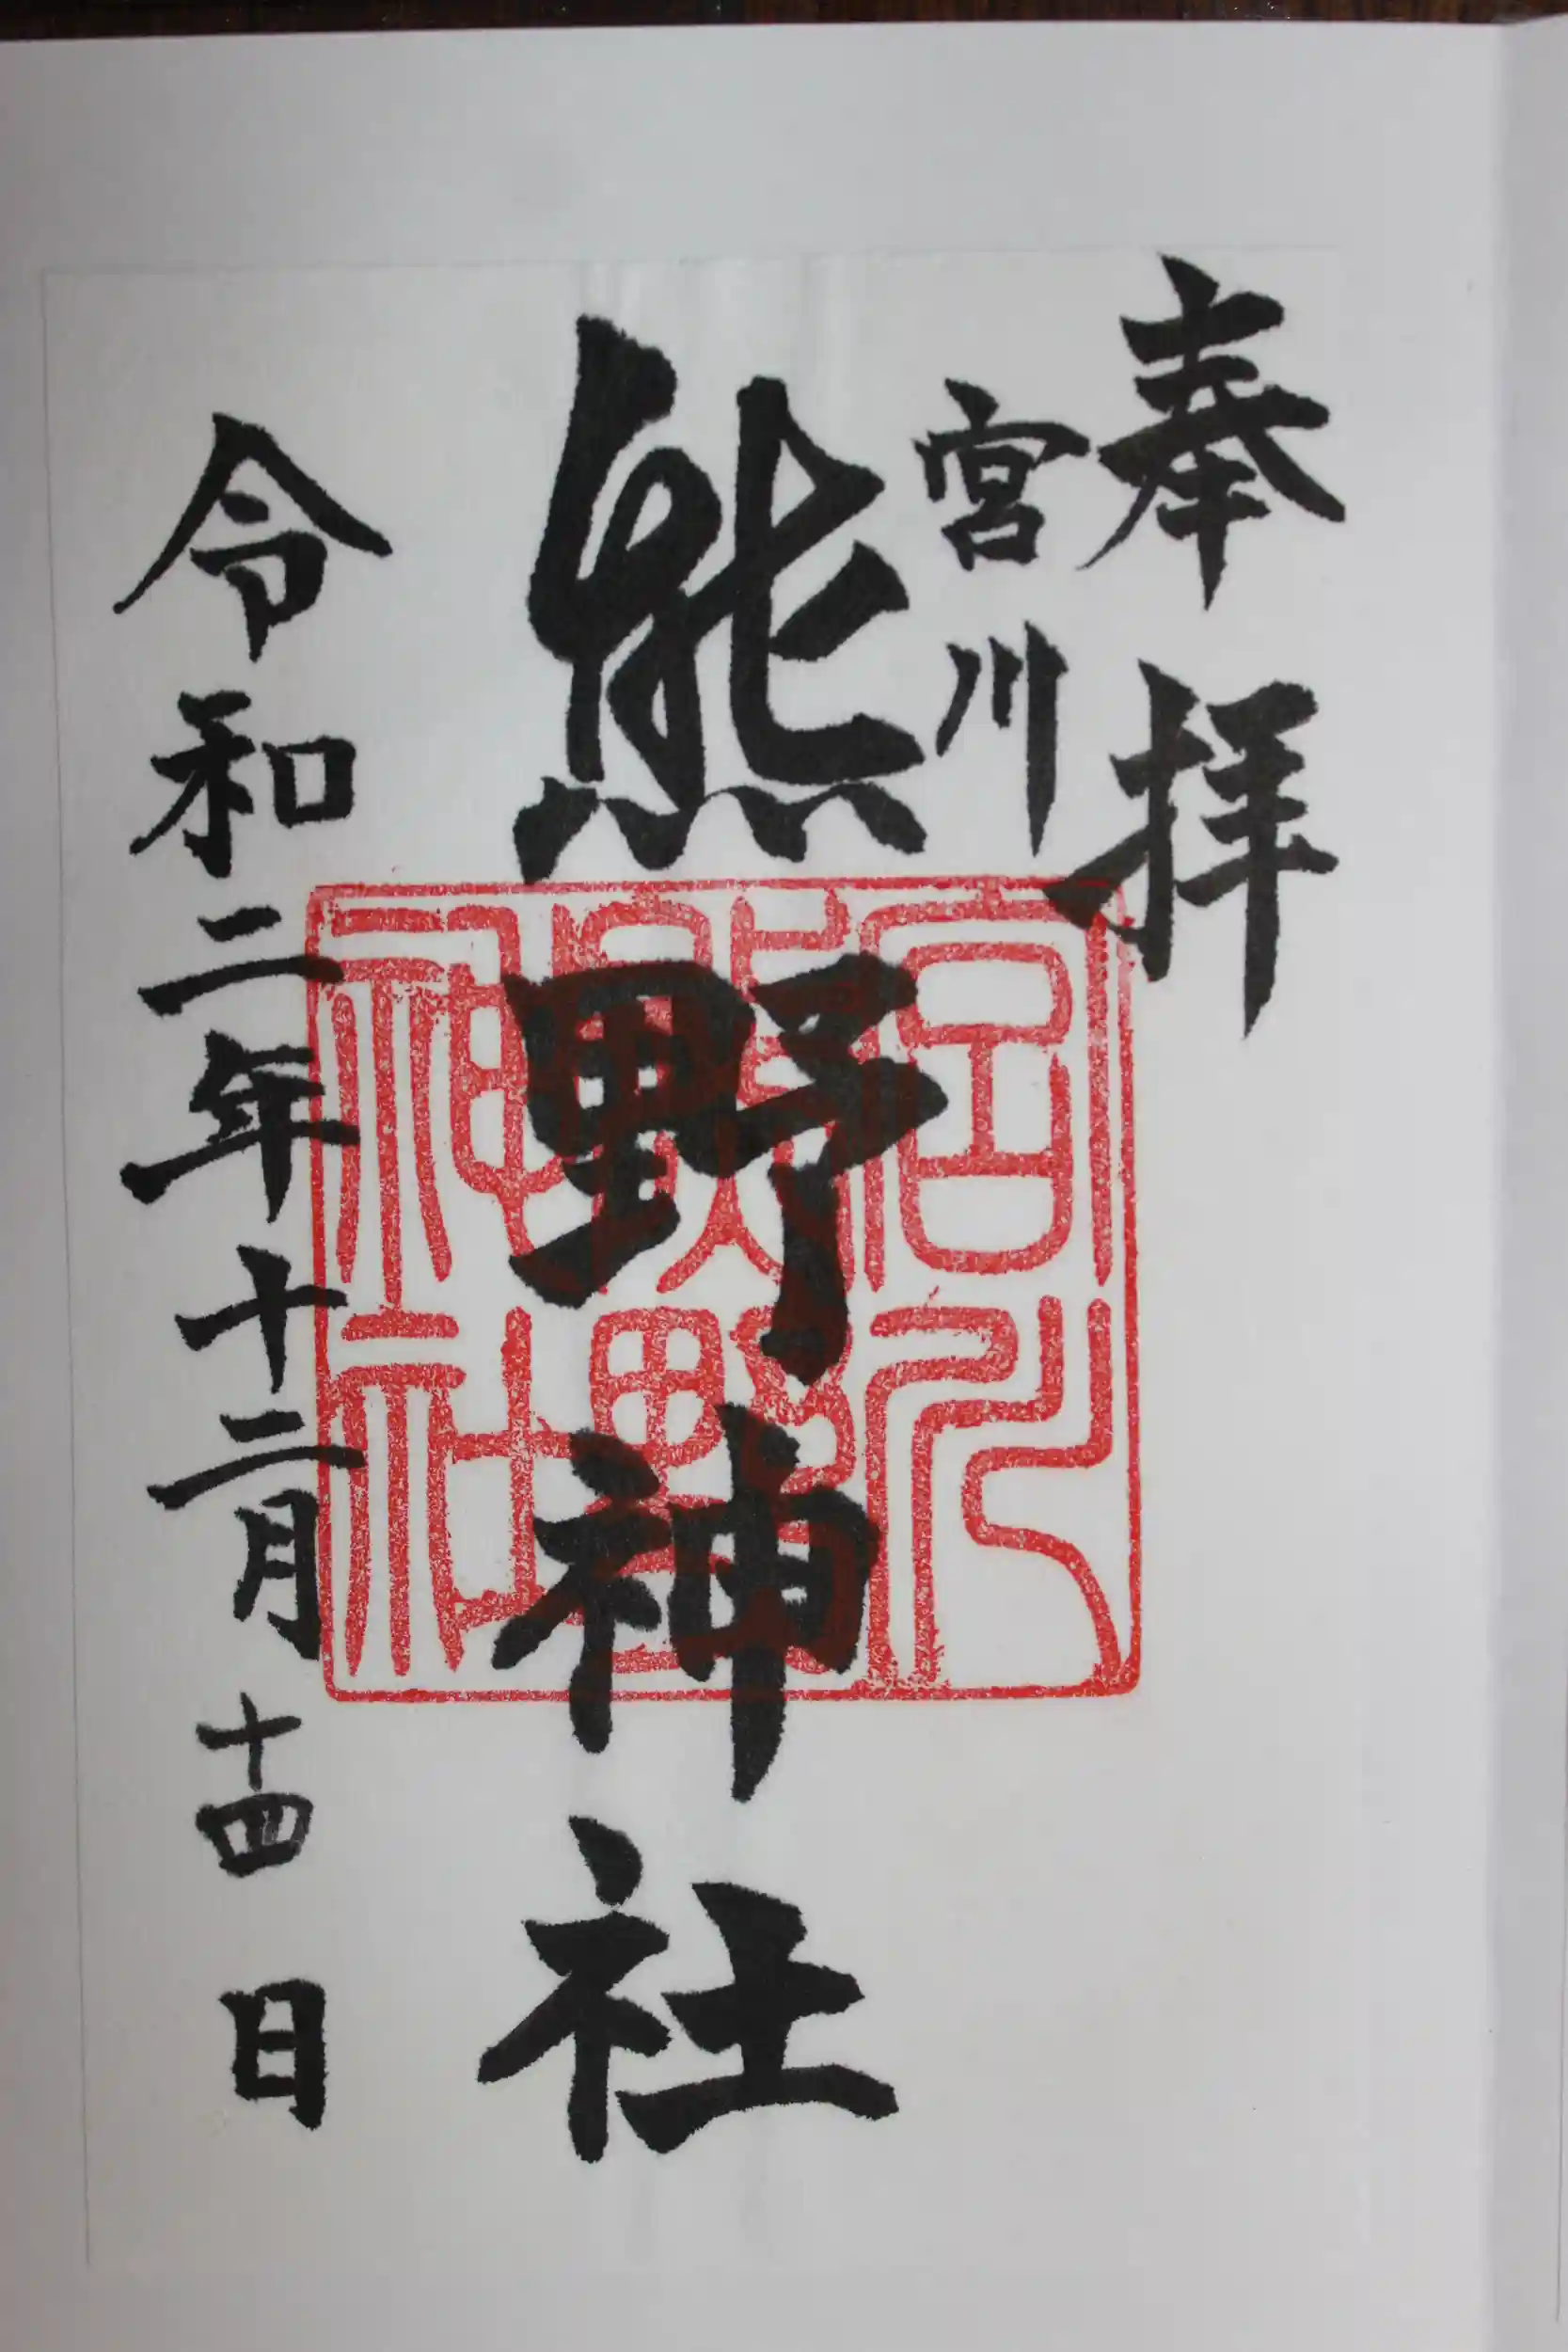 奉拝
宮川
熊野神社
宮川
熊野
神社
令和二年十二月十四日